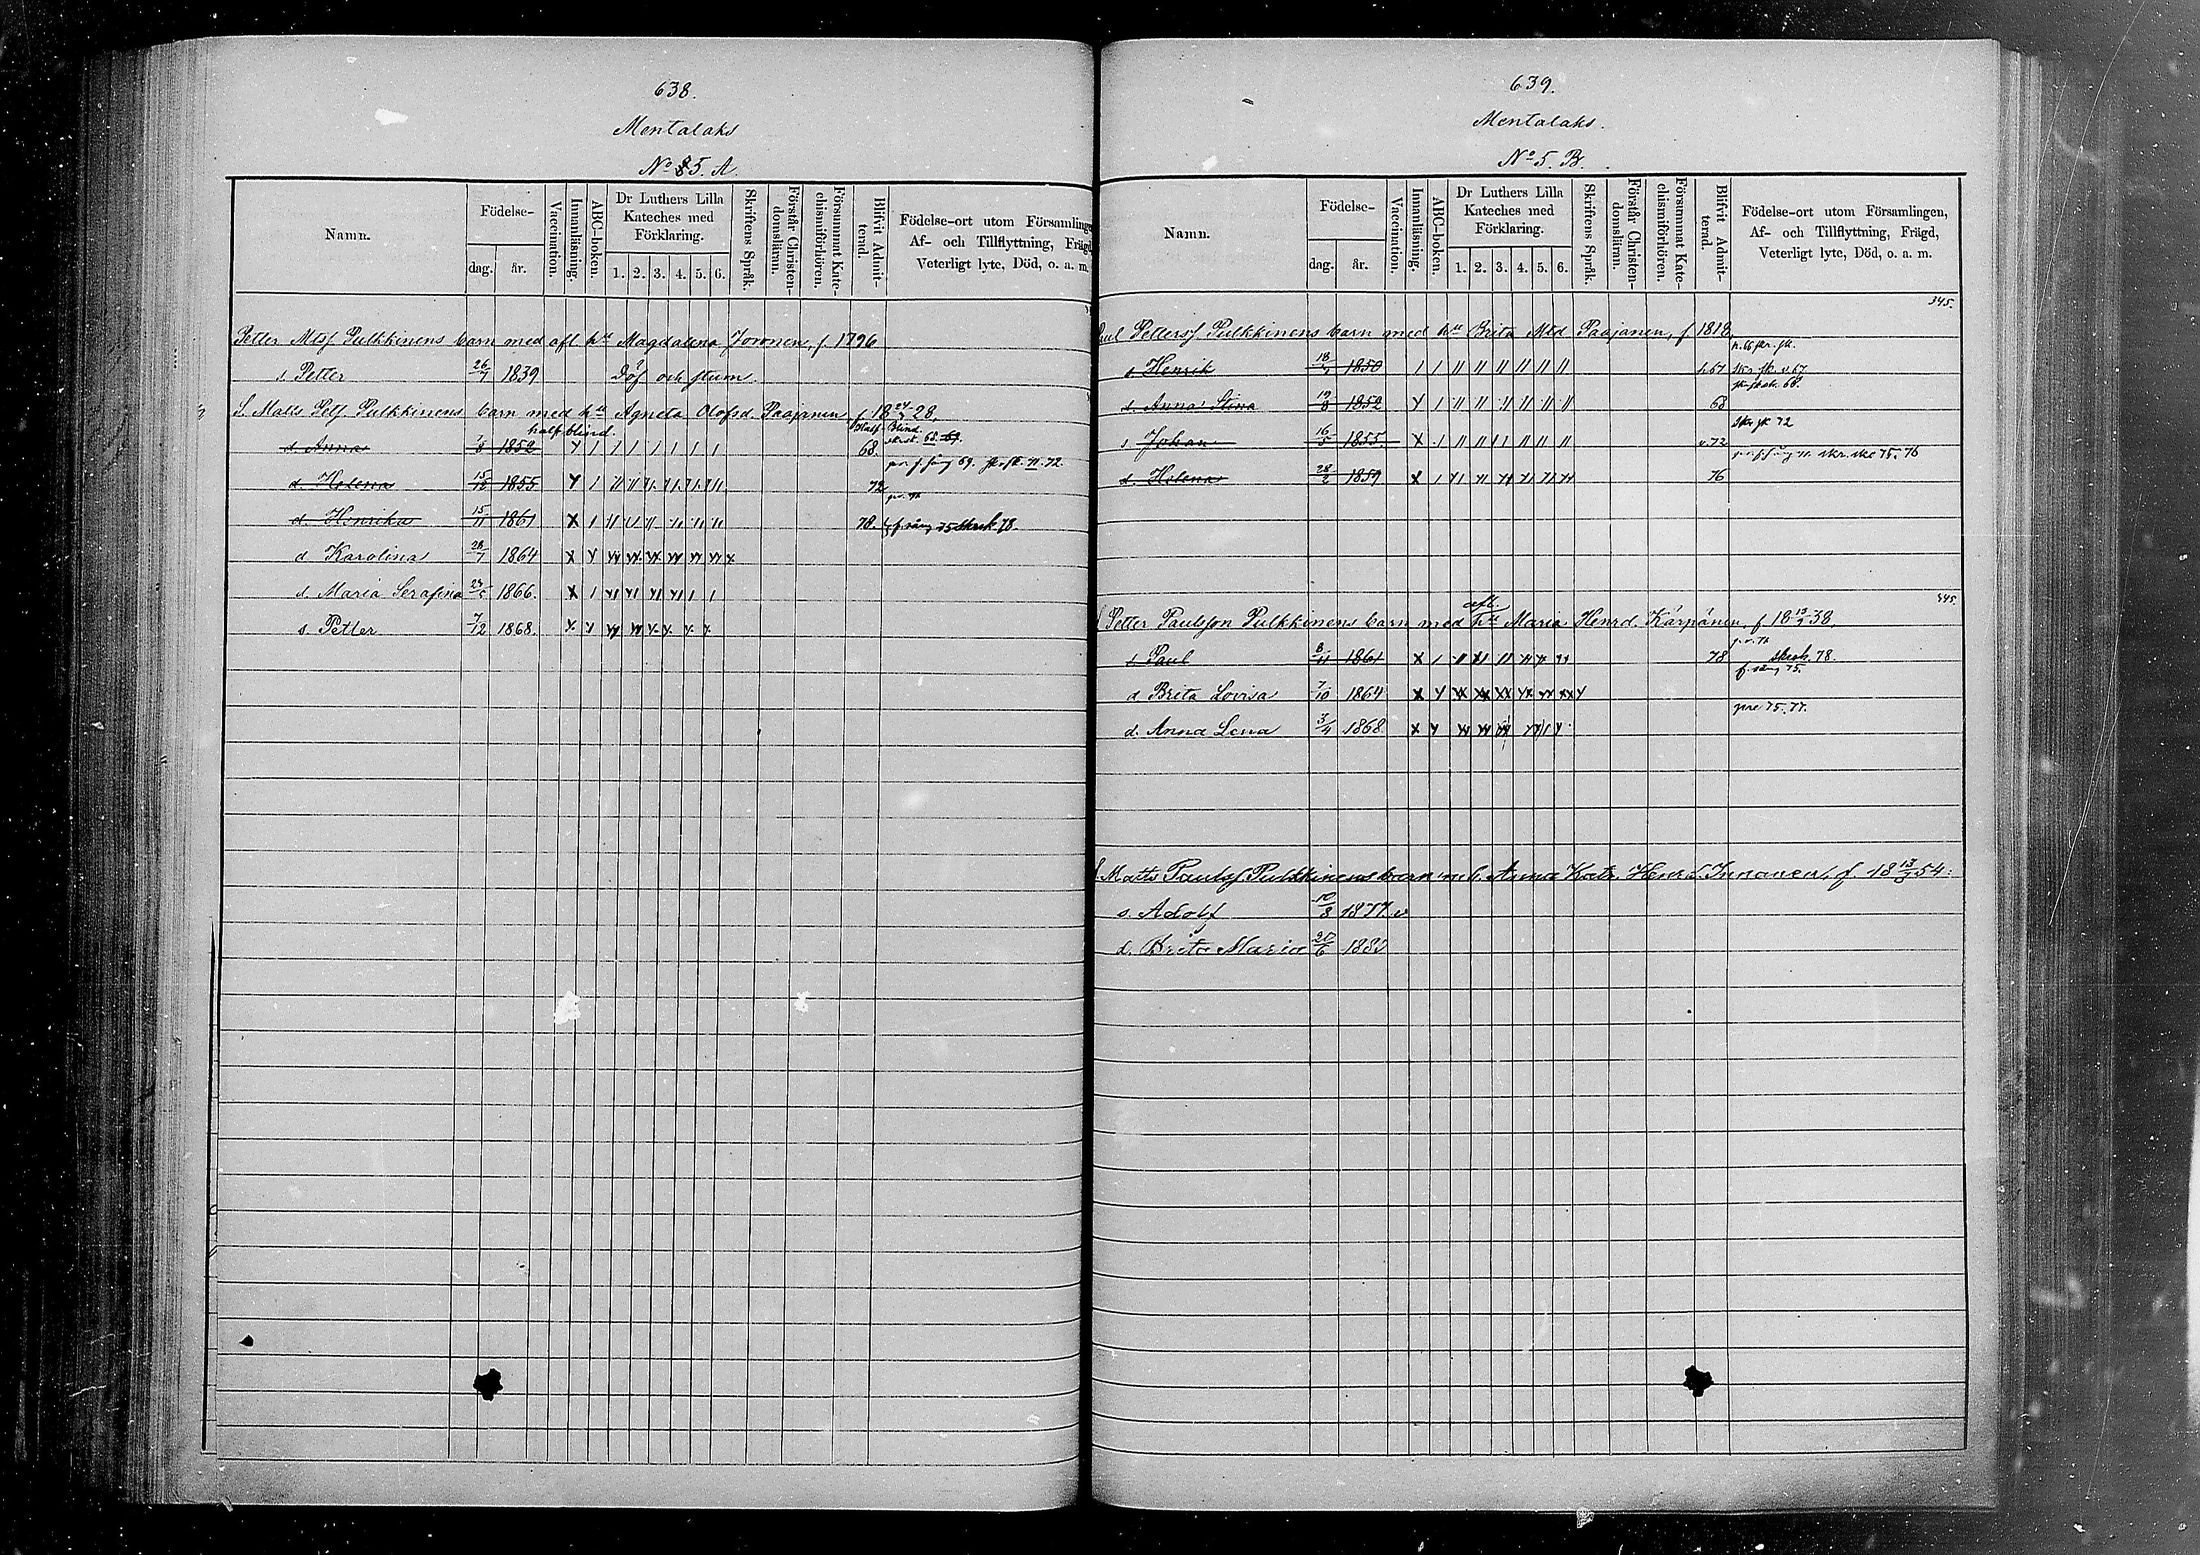 638.
Mentalaks
No 5. A
Namn.
Födelse-
dag.
år.
Vaccination.
Innanläsning.
ABC-boken.
Dr Luthers Lilla Kateches med Förklaring.
1. 2. 3. 4. 5. 6.
Skriftens Språk.
Förstår Christendomsläran.
Försummat Katechismiförhören.
Blifvit Admitterad.
Födelse-ort utom Församlingen,
Af- och Tillflyttning, Frägd,
Veterligt lyte, Död, o. a. m.
Petter Mtsf Pulkkinens barn med afl hu Magdalena f. 1796
s. Petter 26/7 1839 Döf och stum.
S. Matts Petf Pulkkinens barn med hu Agneta Olofsd Paajanen f 18 28.
half blind. Half Blind.
d. Anna 1852 68.
d. Helena 15/12 1855 72
d. Henrika 15/11 1861 78. f. sång 75 skrsk 78.
d Karolina 28/7 1864
d. Maria Serafina 1866.
s. Petter 7/12 1868.
639.
Mentalaks.
No 5. B.
Namn.
Födelse-
dag.
år.
Vaccination.
Innanläsning.
ABC-boken.
Dr Luthers Lilla Kateches med Förklaring.
1. 2. 3. 4. 5. 6.
Skriftens Språk.
Förstår Christendomsläran.
Försummat Katechismiförhören.
Blifvit Admitterad.
Födelse-ort utom Församlingen,
Af- och Tillflyttning, Frägd,
Veterligt lyte, Död, o. a. m.
345.
Paul Pettersf Pulkkinens barn med hu Brita Mtd Paajanen, f 1818.
s Henrik 1850 67
d. Anna Stina 19/8 1852 68
skr sk 72
s Johan 16/5 1855 72
d. Helena 28/2 1859 76
345.
afl.
S Petter Paulsson Pulkkinens barn med hu Maria Henrd. Kärpänen, f 18 38.
s Paul 8/11 1861 78 skrsk. 78.
f. sång 75.
d Brita Lovisa 7/10 1864
75. 77.
d. Anna Lena 3/4 1868
S Matts Paulsf Pulkkinens barn m h. Anna Katr. Henr d. Innanen, f. 18 54.
s. Adolf 10/8 1877 v
d. Brita Maria 1880